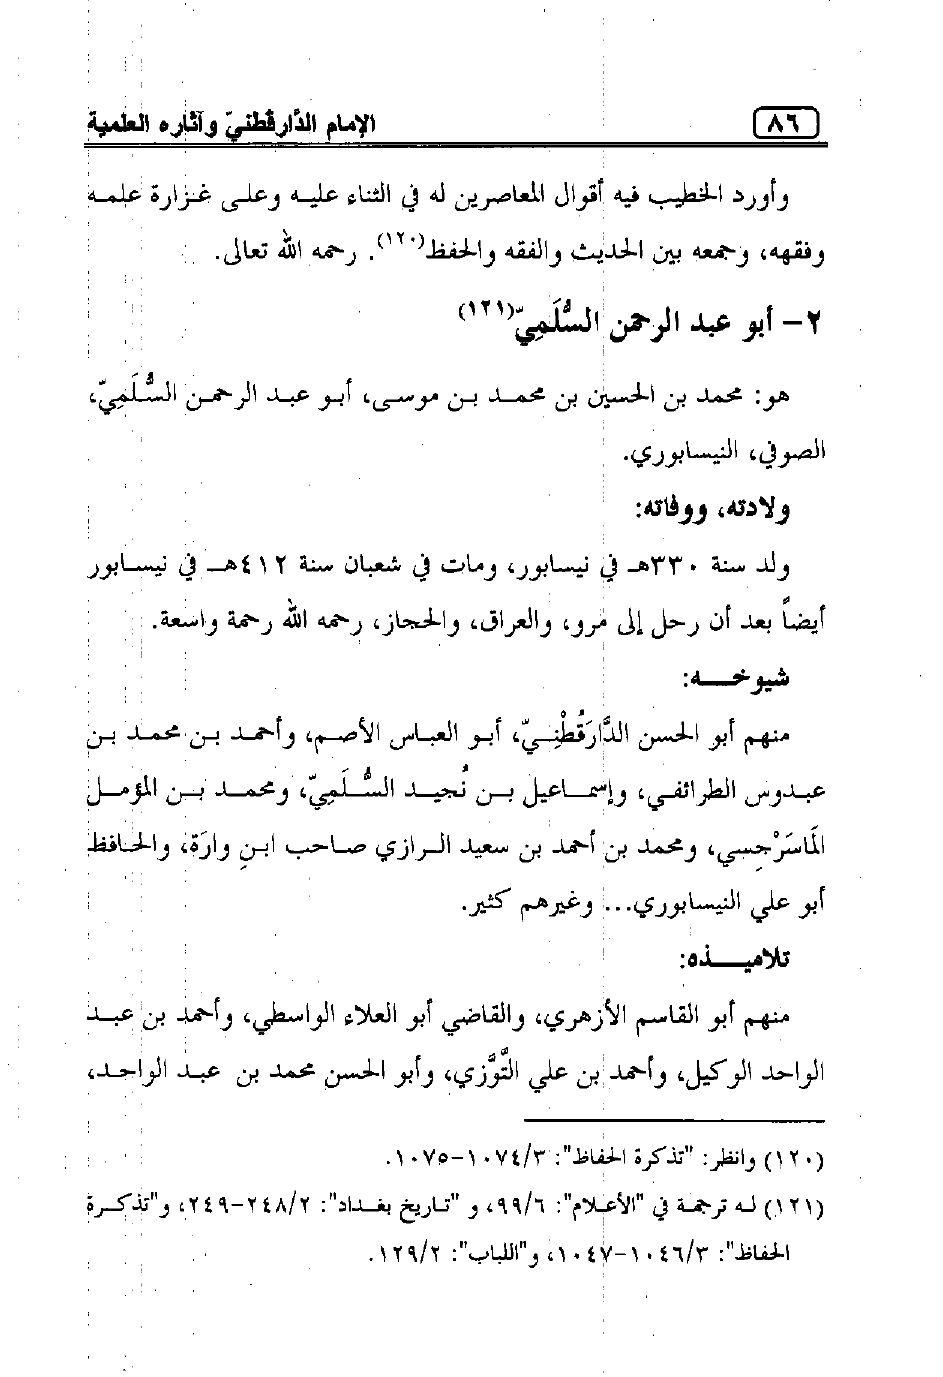 ٨٦
الإمام الدَّارقُطنيّ وآثاره العلمية
وأورد الخطيب فيه أقوال المعاصرين له في الثناء عليه وعلى غزارة علمه
وفقهه، وجمعه بين الحديث والفقه والحفظ(١٢٠). رحمه الله تعالى.
٢- أبو عبد الرحمن السُّلَمِيّ(١٢١)
هو: محمد بن الحسين بن محمد بن موسى، أبو عبد الرحمن السُّلَمِيّ،
الصوفي، النيسابوري.
ولادته، ووفاته:
ولد سنة ٣٣٠هـ في نيسابور، ومات في شعبان سنة ٤١٢هـ في نيسابور
أيضاً بعد أن رحل إلى مرو، والعراق، والحجاز، رحمه الله رحمة واسعة.
شيوخه:
منهم أبو الحسن الدَّارَقُطْنِيّ، أبو العباس الأصم، وأحمد بن محمد بن
عبدوس الطرائفي، وإسماعيل بن نُجيد السُّلَمِيّ، ومحمد بن المؤمل
المَاسَرْجِسي، ومحمد بن أحمد بن سعيد الرازي صاحب ابنِ وارَة، والحافظ
أبو علي النيسابوري... وغيرهم كثير.
تلاميذه:
منهم أبو القاسم الأزهري، والقاضي أبو العلاء الواسطي، وأحمد بن عبد
الواحد الوكيل، وأحمد بن علي التَّوَّزي، وأبو الحسن محمد بن عبد الواحد،
(١٢٠) وانظر: "تذكرة الحفاظ": ١٠٧٤/٣-١٠٧٥.
(١٢١) له ترجمة في "الأعلام": ٩٩/٦، و "تاريخ بغداد": ٢٤٨/٢-٢٤٩، و"تذكرة
الحفاظ": ١٠٤٦/٣-١٠٤٧، و"اللباب": ١٢٩/٢.